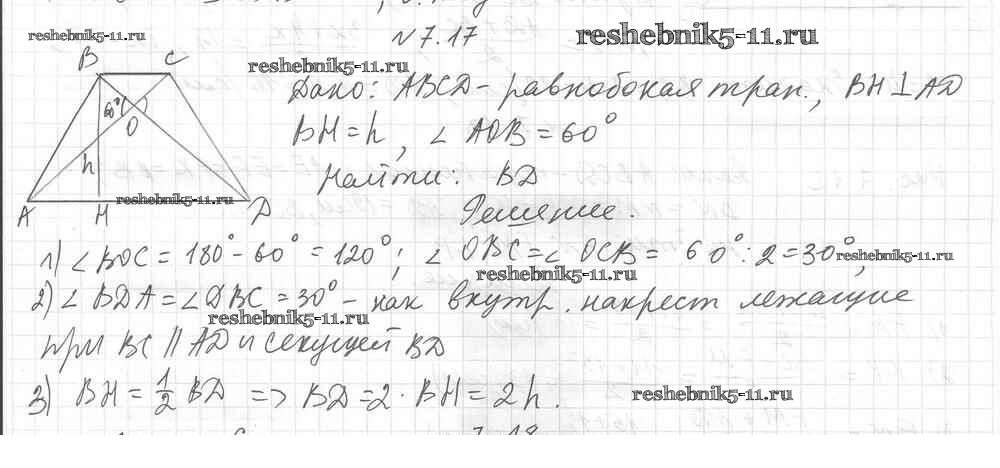 №7.17
reshebnik5-11.ru
reshebnik5-11.ru
reshebnik5-11.ru
B C
60°
O
h
A H D
reshebnik5-11.ru
Дано: ABCD - равнобокая трап., BH ⊥ AD
BH = h, ∠ AOB = 60°
Найти: BD
Решение.
1) ∠ BOC = 180° - 60° = 120°; ∠ OBC = ∠ OCB = 60° : 2 = 30°,
reshebnik5-11.ru
reshebnik5-11.ru
2) ∠ BDA = ∠ DBC = 30° - как внутр. накрест лежащие
reshebnik5-11.ru
при BC || AD и секущей BD
3) BH = 1/2 BD => BD = 2 · BH = 2h.
reshebnik5-11.ru